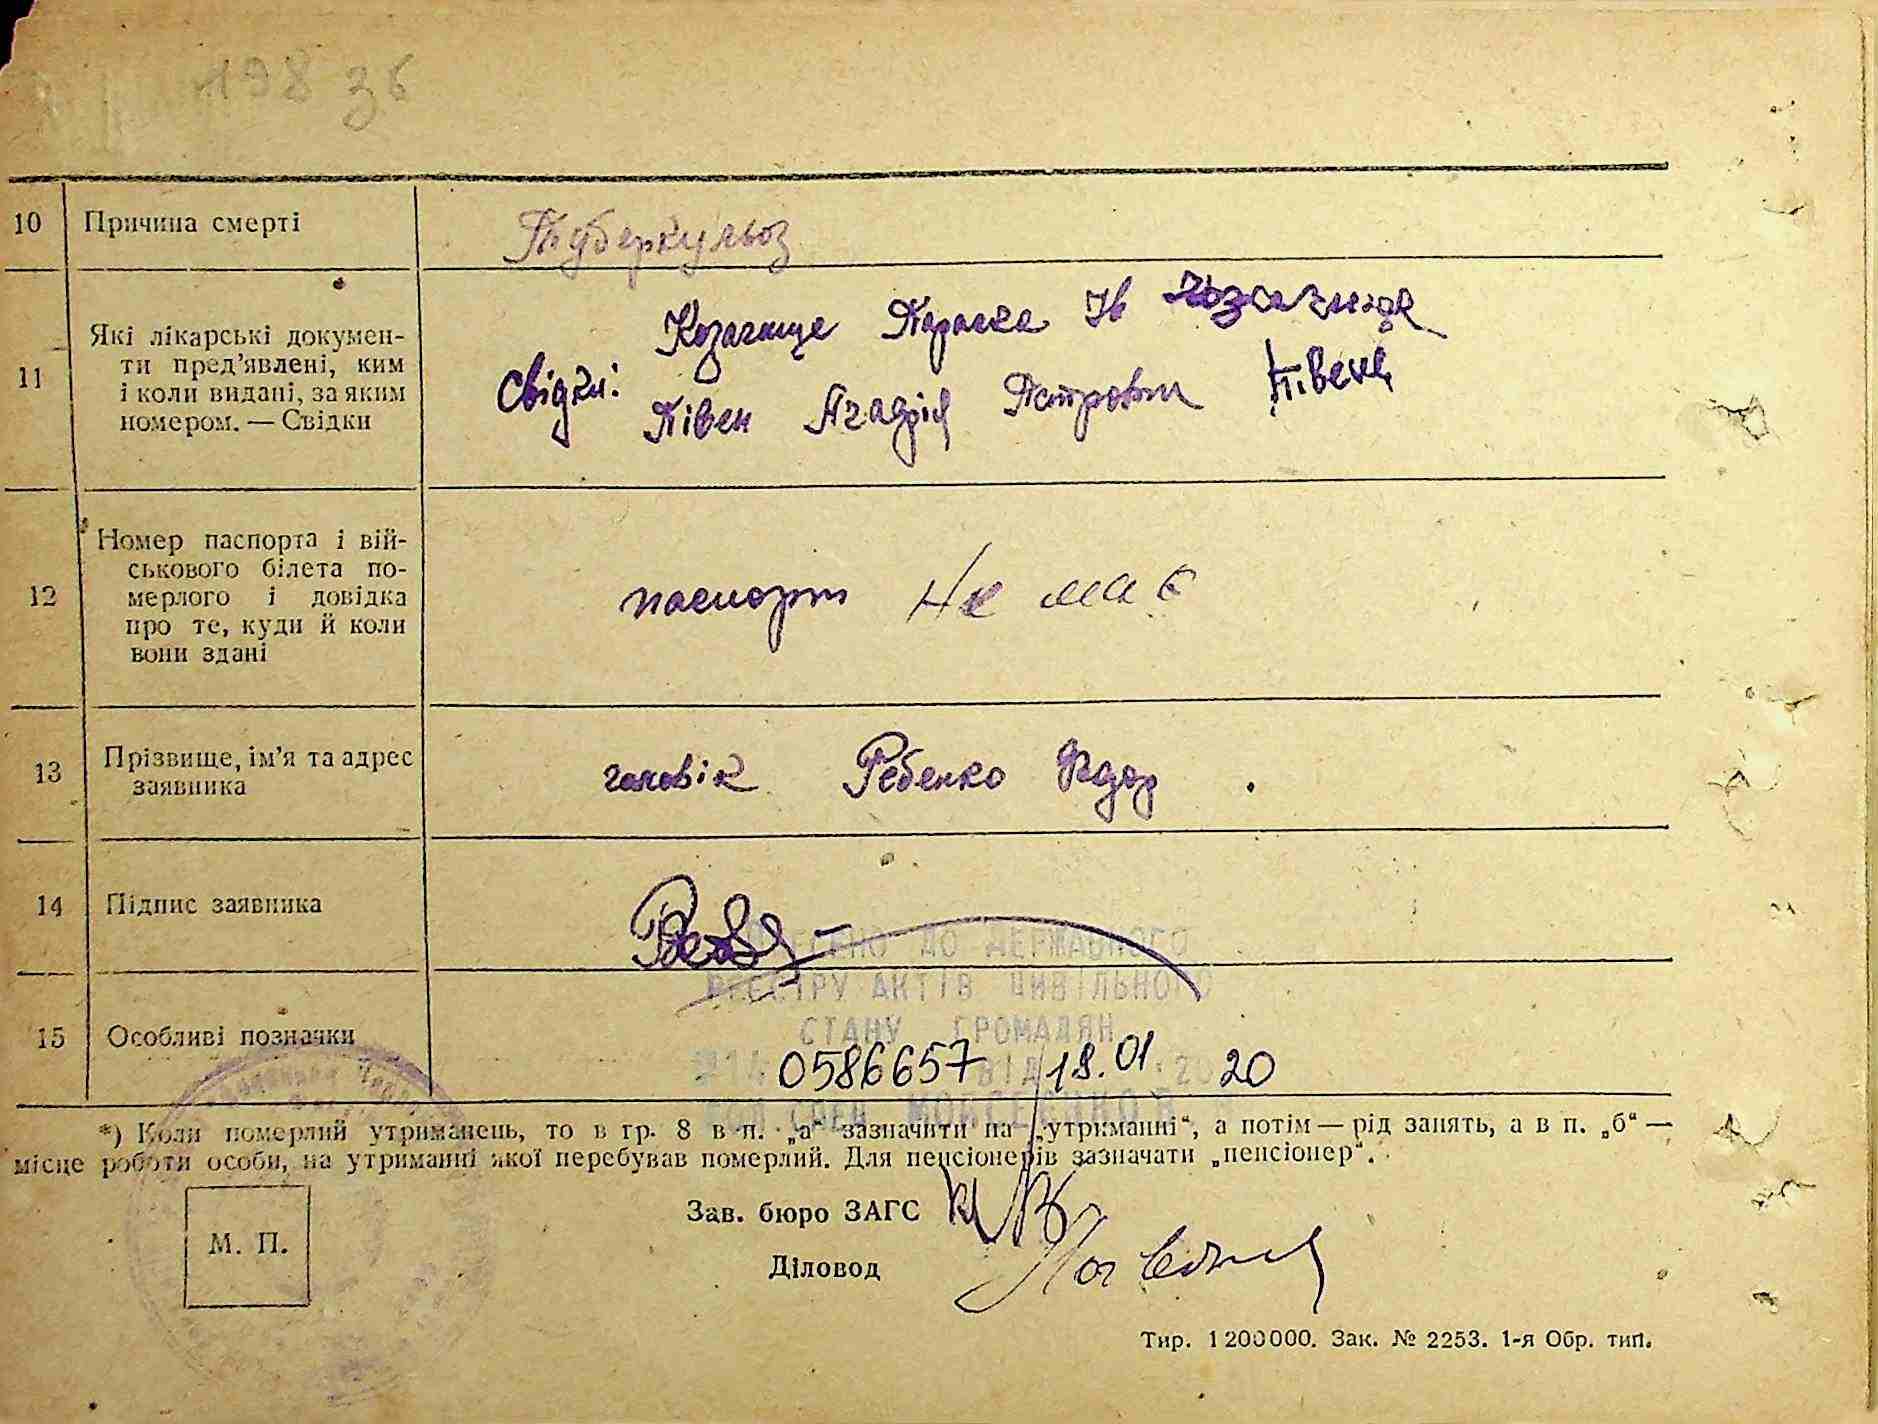 198 зб
10 Причина смерті Туберкульоз
11 Які лікарські докумен-
ти пред’явлені, ким
і коли видані, за яким
номером. — Свідки
Свідки: Параска Ів
Півен Петрович Півень
12 Номер паспорта і вій-
ськового білета по-
мерлого і довідка
про те, куди й коли
вони здані
паспорт не має
13 Прізвище, ім’я та адрес
заявника
чоловік Ребенко Федор
14 Підпис заявника
15 Особливі позначки
ДО ДЕРЖАВНОГО
РЕЄСТРУ АКТІВ ЦИВІЛЬНОГО
СТАНУ ГРОМАДЯН
0586657 ВІД 18.01.2020
*) Коли померлий утриманець, то в гр. 8 в п. „а“ зазначити на „утриманні“, а потім — рід занять, а в п. „б“ —
місце роботи особи, на утриманні якої перебував померлий. Для пенсіонерів зазначати „пенсіонер“.
М. П.
Зав. бюро ЗАГС
Діловод
Тир. 1200000. Зак. № 2253. 1-я Обр. тип.